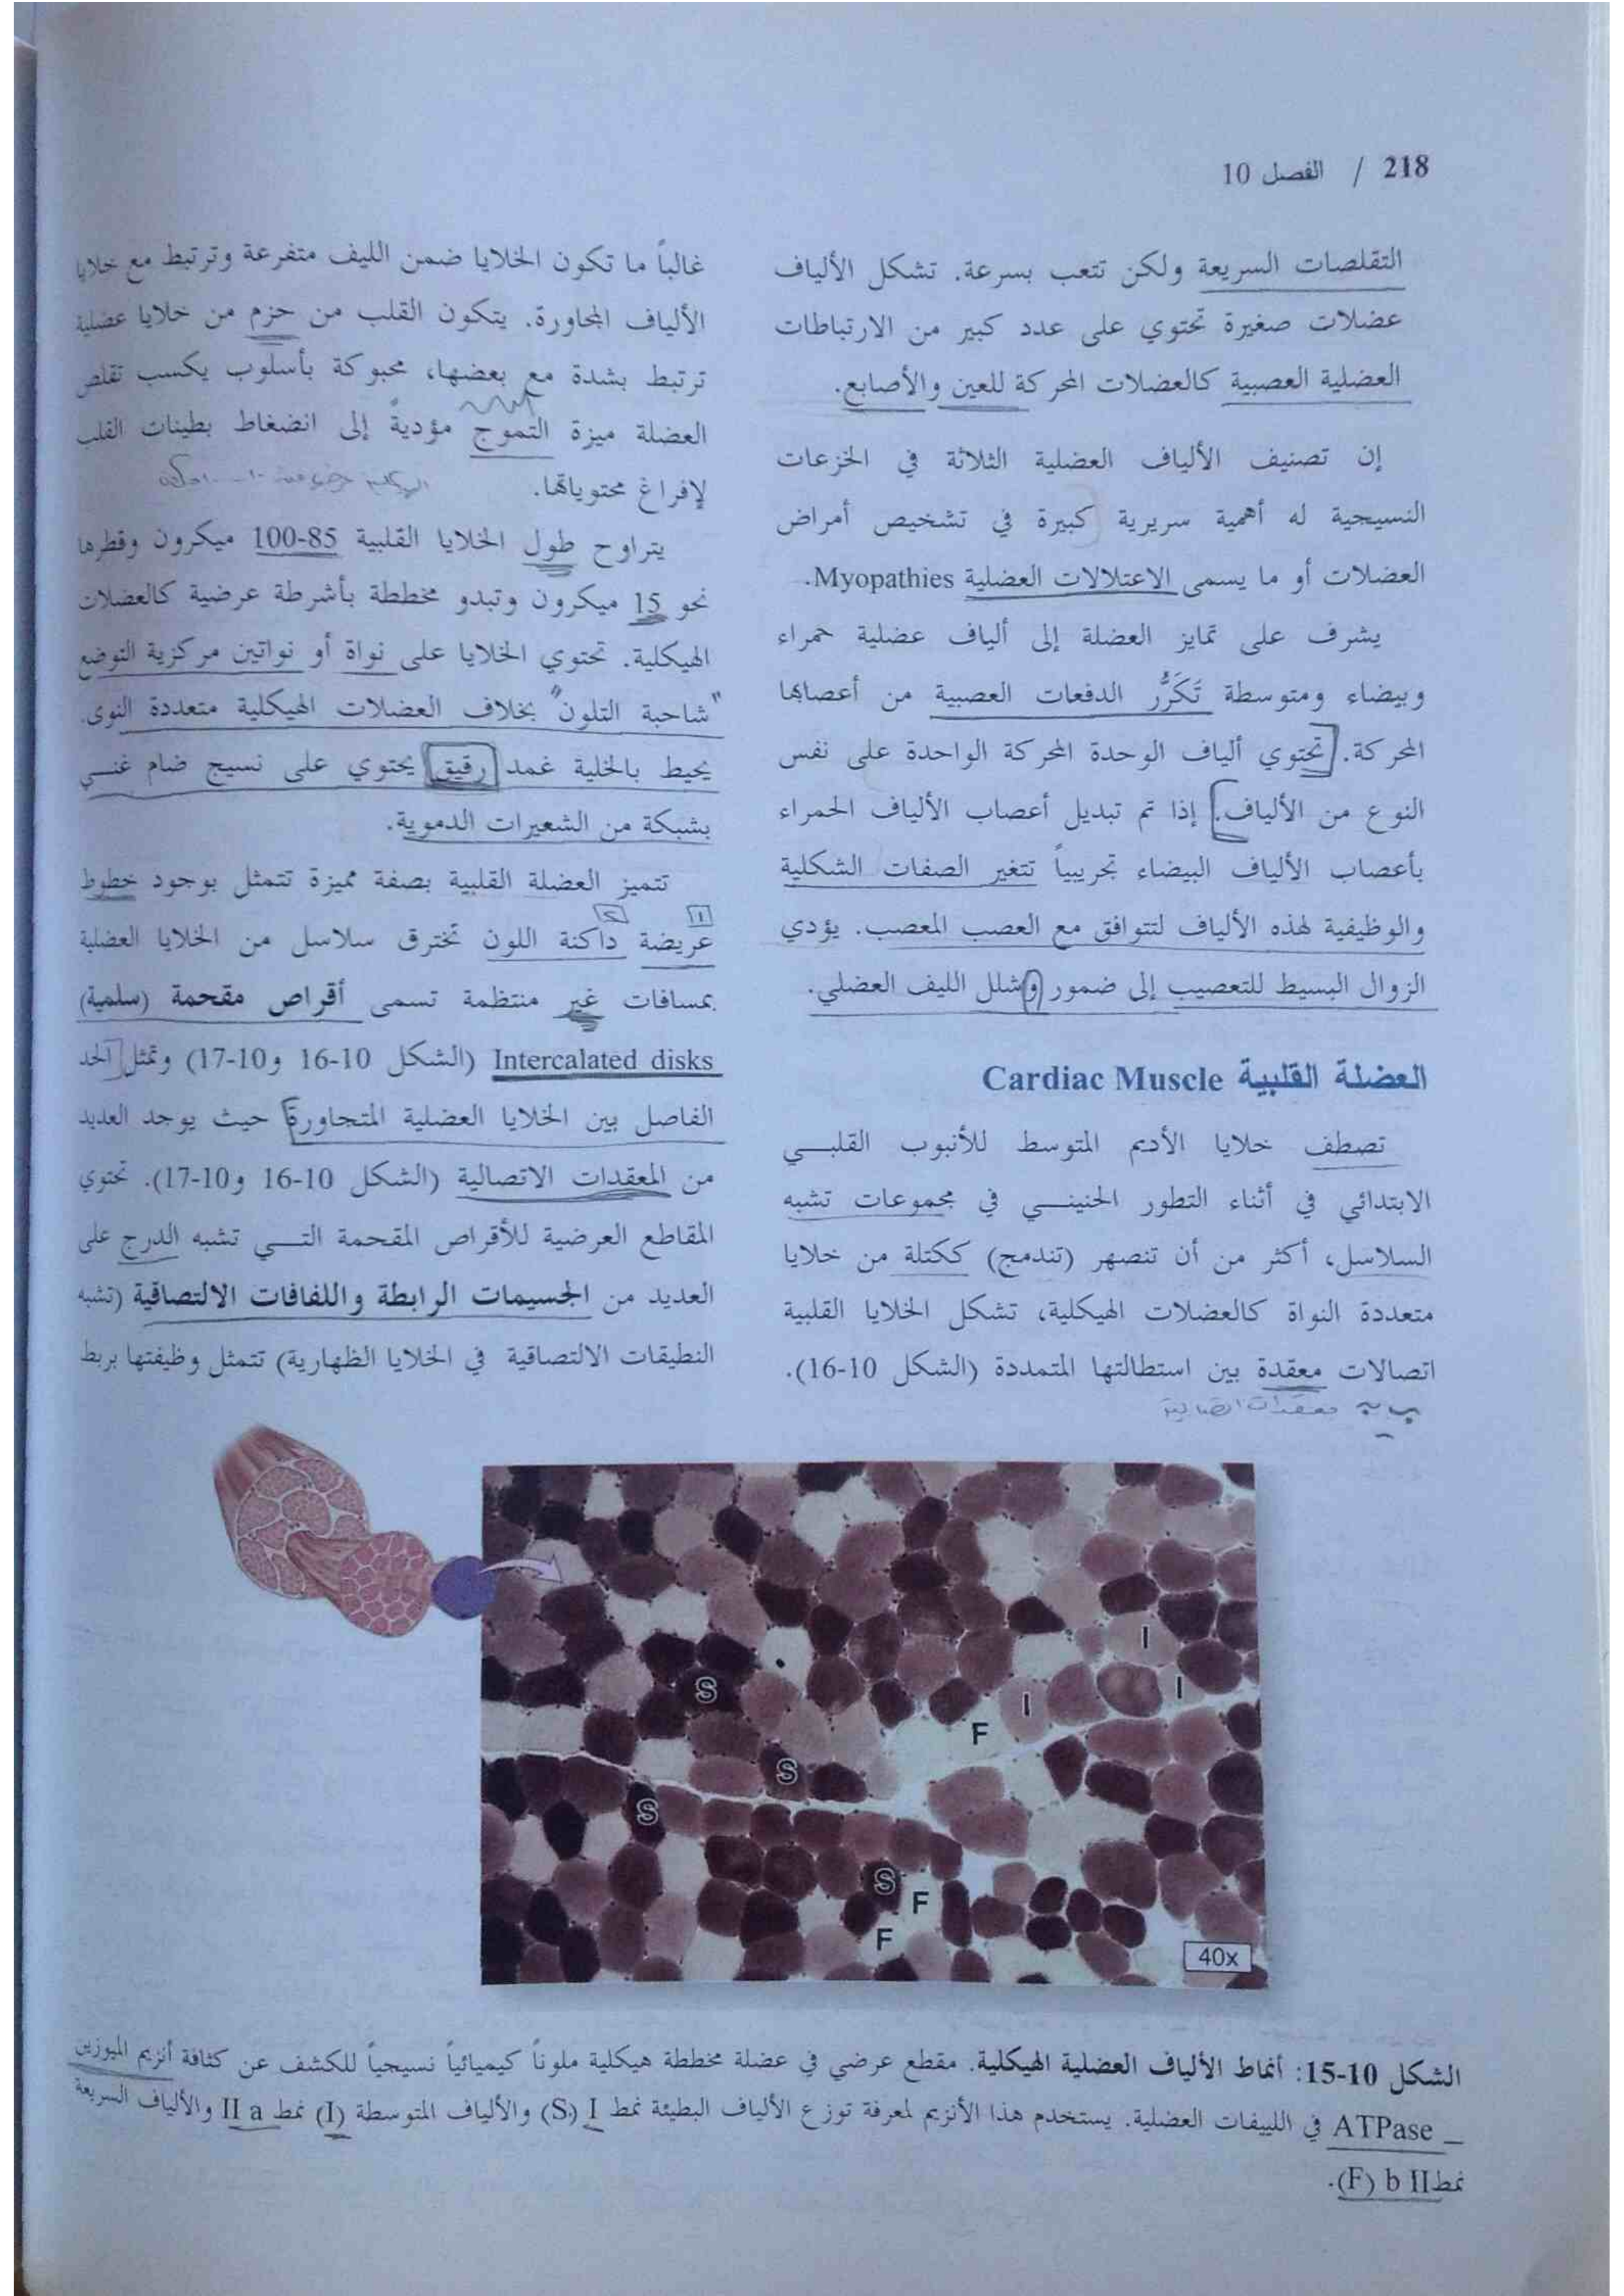 218 / الفصل 10
التقلصات السريعة ولكن تتعب بسرعة. تشكل الألياف
عضلات صغيرة تحتوي على عدد كبير من الارتباطات
العضلية العصبية كالعضلات المحركة للعين والأصابع.
إن تصنيف الألياف العضلية الثلاثة في الخزعات
النسيجية له أهمية سريرية كبيرة في تشخيص أمراض
العضلات أو ما يسمى الاعتلالات العضلية Myopathies.
يشرف على تمايز العضلة إلى ألياف عضلية حمراء
وبيضاء ومتوسطة تَكَرُّر الدفعات العصبية من أعصابها
المحركة. تحتوي ألياف الوحدة المحركة الواحدة على نفس
النوع من الألياف. إذا تم تبديل أعصاب الألياف الحمراء
بأعصاب الألياف البيضاء تجريبياً تتغير الصفات الشكلية
والوظيفية لهذه الألياف لتتوافق مع العصب المعصب. يؤدي
الزوال البسيط للتعصيب إلى ضمور وشلل الليف العضلي.
العضلة القلبية Cardiac Muscle
تصطف خلايا الأديم المتوسط للأنبوب القلبي
الابتدائي في أثناء التطور الجنيني في مجموعات تشبه
السلاسل، أكثر من أن تنصهر (تندمج) ككتلة من خلايا
متعددة النواة كالعضلات الهيكلية، تشكل الخلايا القلبية
اتصالات معقدة بين استطالتها المتمددة (الشكل 10-16).
معقدات اتصالية
غالباً ما تكون الخلايا ضمن الليف متفرعة وترتبط مع خلايا
الألياف المجاورة. يتكون القلب من حزم من خلايا عضلية
ترتبط بشدة مع بعضها، محبوكة بأسلوب يكسب تقلص
العضلة ميزة التموج مؤديةً إلى انضغاط بطينات القلب
لإفراغ محتوياتها.
يتراوح طول الخلايا القلبية 85-100 ميكرون وقطرها
نحو 15 ميكرون وتبدو مخططة بأشرطة عرضية كالعضلات
الهيكلية. تحتوي الخلايا على نواة أو نواتين مركزية التوضع
"شاحبة التلون" بخلاف العضلات الهيكلية متعددة النوى.
يحيط بالخلية غمد رقيق يحتوي على نسيج ضام غني
بشبكة من الشعيرات الدموية.
تتميز العضلة القلبية بصفة مميزة تتمثل بوجود خطوط
عريضة داكنة اللون تخترق سلاسل من الخلايا العضلية
بمسافات غير منتظمة تسمى أقراص مقحمة (سلمية)
Intercalated disks (الشكل 10-16 و10-17) وتمثل الحد
الفاصل بين الخلايا العضلية المتجاورة حيث يوجد العديد
من المعقدات الاتصالية (الشكل 10-16 و10-17). تحتوي
المقاطع العرضية للأقراص المقحمة التي تشبه الدرج على
العديد من الجسيمات الرابطة واللفافات الالتصاقية (تشبه
النطيقات الالتصاقية في الخلايا الظهارية) تتمثل وظيفتها بربط
I
S
I
I
F
S
S
S
F
F
40x
الشكل 10-15: أنماط الألياف العضلية الهيكلية. مقطع عرضي في عضلة مخططة هيكلية ملوناً كيميائياً نسيجياً للكشف عن كثافة أنزيم الميوزين
_ ATPase في الليفات العضلية. يستخدم هذا الأنزيم لمعرفة توزع الألياف البطيئة نمط I (S) والألياف المتوسطة (I) نمط II a والألياف السريعة
نمط II b (F).